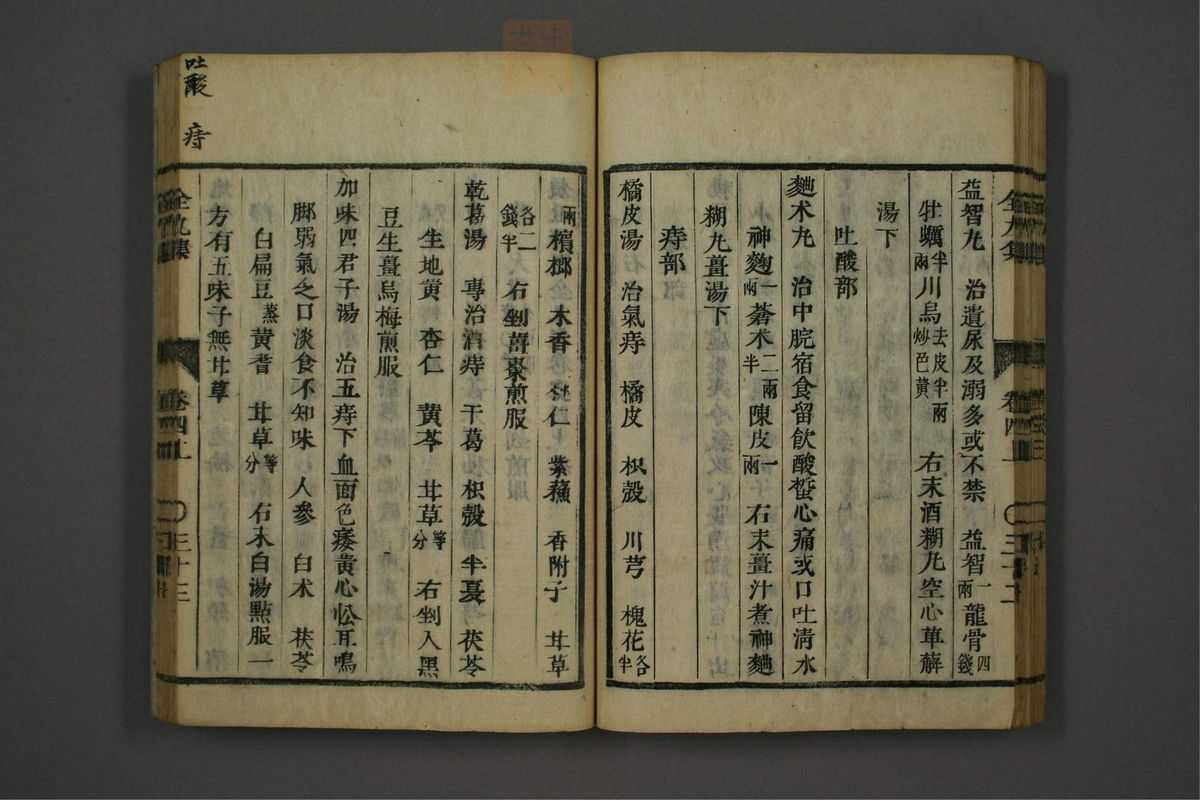 益智丸　治遺尿及溺多或不禁　益智一兩龍骨四錢
牡蠣半兩川烏去皮半兩炒色黃　右末酒糊丸空心萆薢
湯下
吐酸部
麯朮丸　治中脘宿食留飲酸蜇心痛或口吐清水
神麴一兩蒼朮二兩半陳皮一兩　右末薑汁煮神麯
糊丸薑湯下
痔部
橘皮湯　治氣痔　橘皮　枳殼　川芎　槐花各半
兩檳榔　木香　桃仁　紫蘓　香附子　甘草
各二錢半　右剉薑棗煎服
乾葛湯　專治酒痔　干葛　枳殼　半夏　茯苓
生地黃　杏仁　黄芩　甘草等分　右剉入黑
豆生薑烏梅煎服
加味四君子湯　治五痔下血面色痿黄心忪耳鳴
脚弱氣乏口淡食不知味　人參　白朮　茯苓
白扁豆蒸　黄耆　甘草等分　右末白湯點服一
方有五味子無甘草
全九集　卷四上　三十三
吐酸　痔